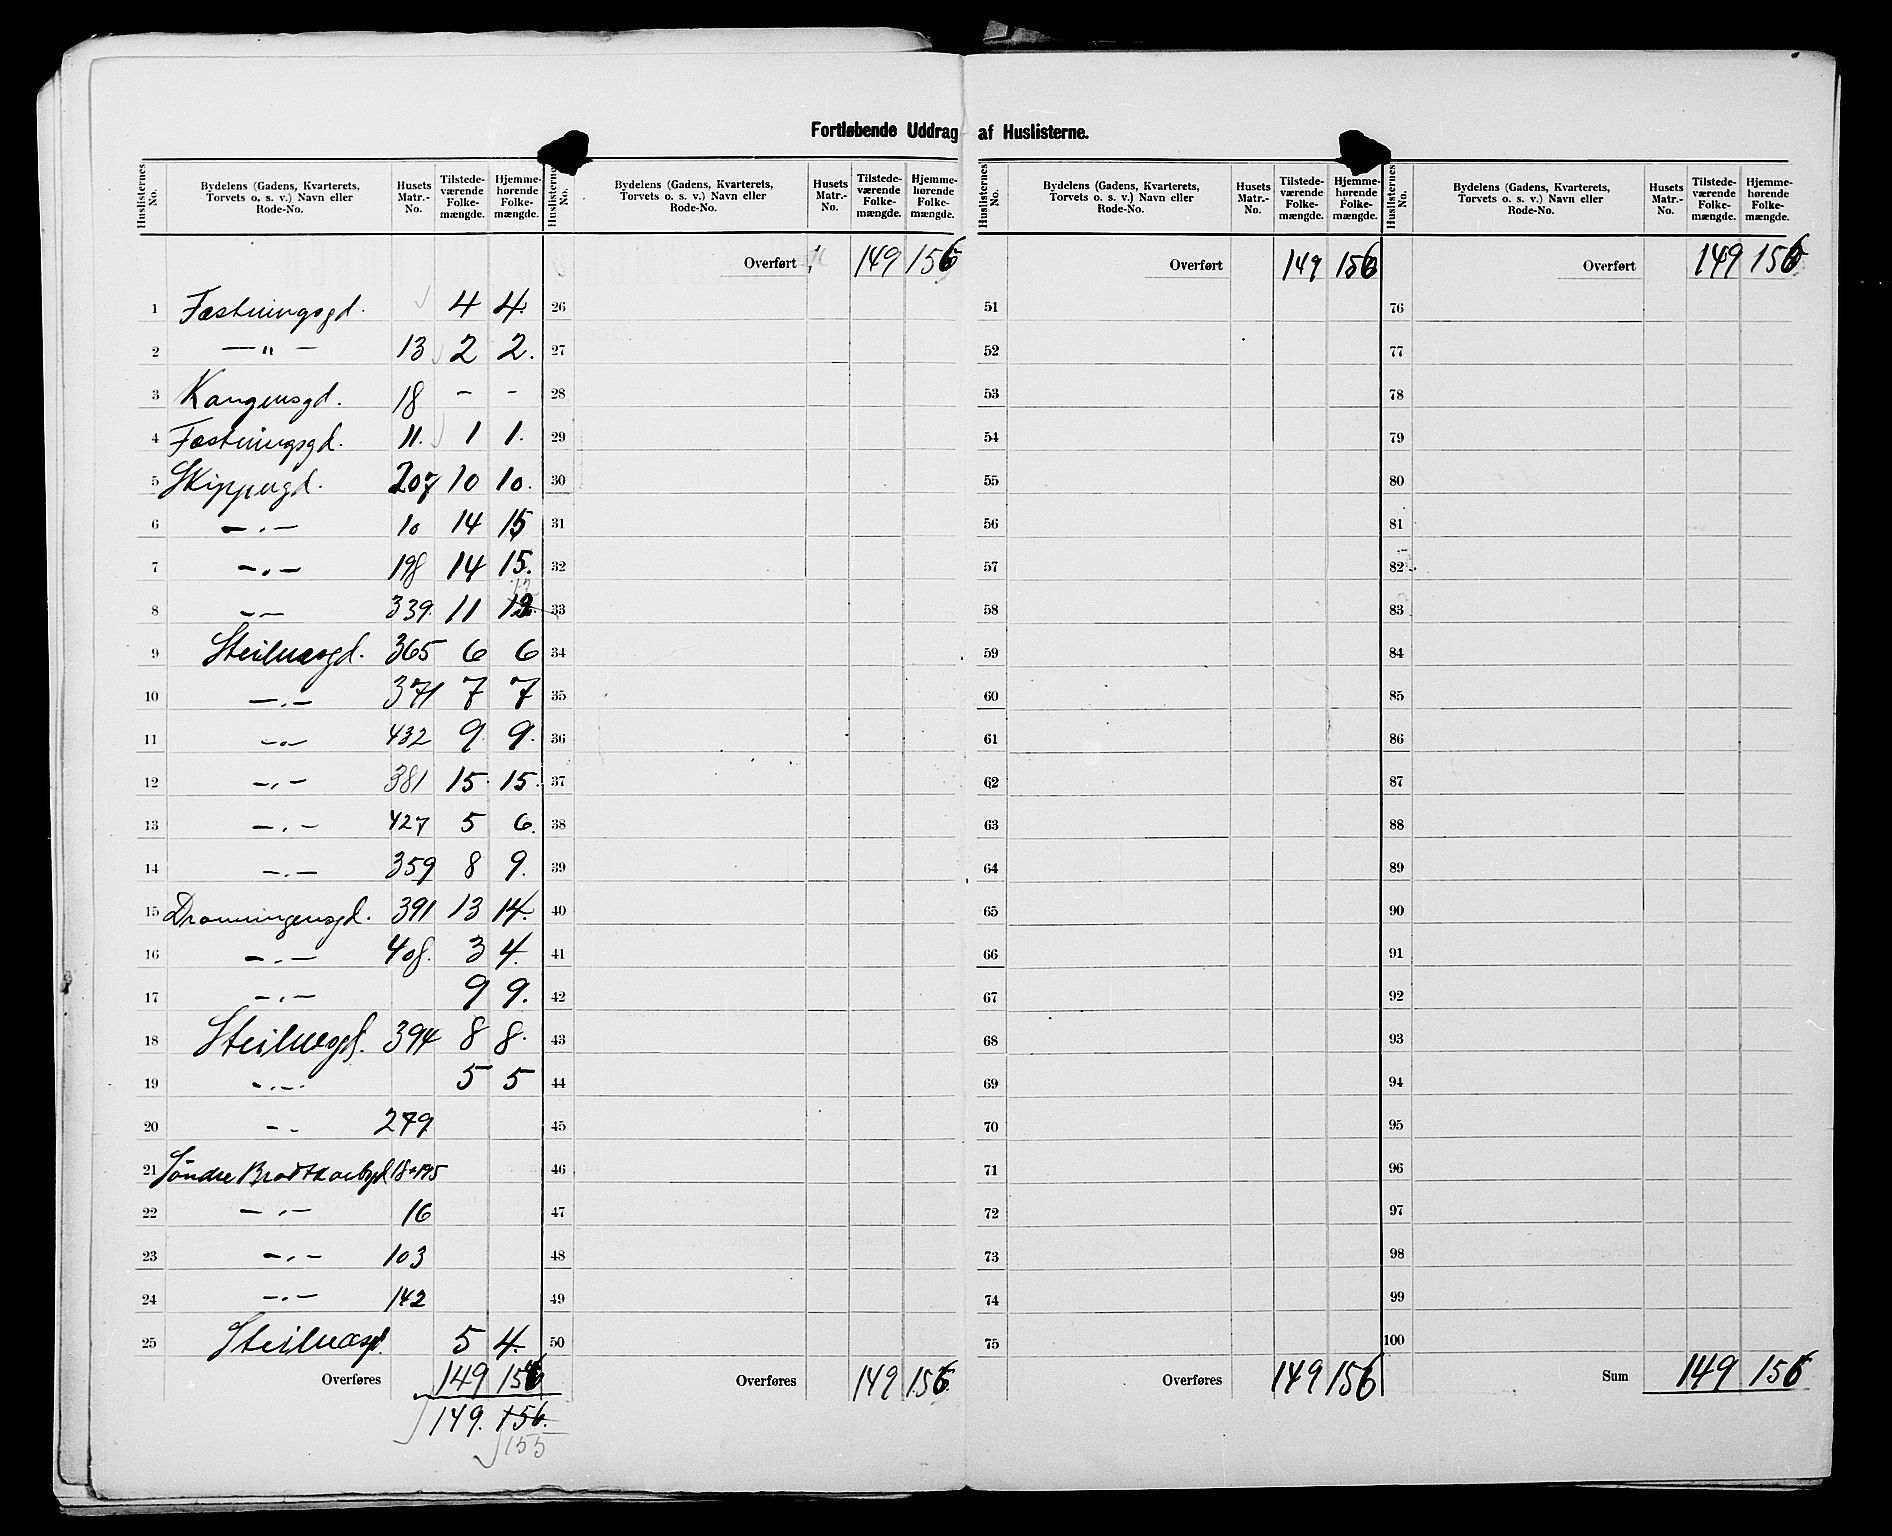 Fortløbende Uddrag af Huslisterne.
Huslisternes No. | Bydelens (Gadens, Kvarterets, Torvets o. s. v.) Navn eller Rode-No. | Husets Matr.-No. | Tilstedeværende Folkemængde. | Hjemmehørende Folkemængde.
1 Fæstningsgd. 4 4.
2 —"— 13 2 2.
3 Kongensgd. 18 - -
4 Fæstningsgd. 11. 1 1.
5 Skippergd. 207 10 10.
6 —.— 10 14 15
7 —.— 198 14 15.
8 —.— 339. 11
9 Steilnæsgd. 365 6 6
10 —.— 371 7 7
11 —.— 432 9 9.
12 —.— 381 15 15.
13 —.— 427 5 6.
14 —.— 359 8 9.
15 Dronningensgd. 391 13 14.
16 —.— 408. 3 4.
17 —.— 9 9.
18 Steilnæsgd. 394 8 8.
19 —.— 5 5
20 —.— 279
21 Søndre Brodtkorbgd 18+195
22 —.— 16
23 —.— 103
24 —.— 142
25 Steilnæsgd. 5 4.
Overføres 149 156
149. 156.
155
Huslisternes No. | Bydelens (Gadens, Kvarterets, Torvets o. s. v.) Navn eller Rode-No. | Husets Matr.-No. | Tilstedeværende Folkemængde. | Hjemmehørende Folkemængde.
Overført 149 156
26
27
28
29
30
31
32
33
34
35
36
37
38
39
40
41
42
43
44
45
46
47
48
49
50
Overføres 149 156
Huslisternes No. | Bydelens (Gadens, Kvarterets, Torvets o. s. v.) Navn eller Rode-No. | Husets Matr.-No. | Tilstedeværende Folkemængde. | Hjemmehørende Folkemængde.
Overført 149 156
51
52
53
54
55
56
57
58
59
60
61
62
63
64
65
66
67
68
69
70
71
72
73
74
75
Overføres 149 156
Huslisternes No. | Bydelens (Gadens, Kvarterets, Torvets o. s. v.) Navn eller Rode-No. | Husets Matr.-No. | Tilstedeværende Folkemængde. | Hjemmehørende Folkemængde.
Overført 149 156
76
77
78
79
80
81
82
83
84
85
86
87
88
89
90
91
92
93
94
95
96
97
98
99
100
Sum 149 156